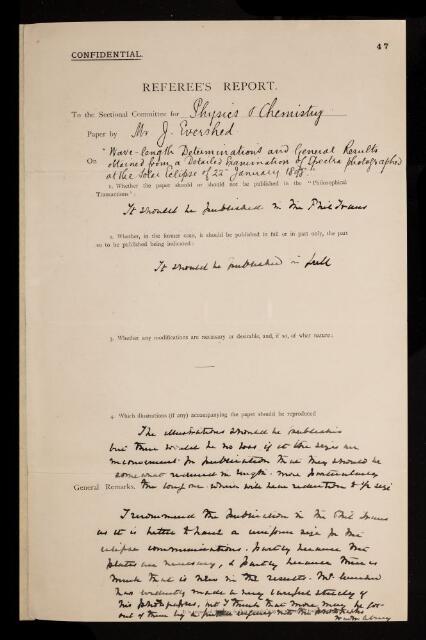 47
CONFIDENTIAL.
REFEREE'S REPORT.
To the Sectional Committee for Physics & Chemistry
Paper by Mr J. Evershed
"Wave-length Determinations and General Results
On obtained from a Detailed Examination of Spectra photographed
at the Solar Eclipse of 22 January 1898."
1. Whether the paper should or should not be published in the "Philosophical
Transactions":
It should be published in the Phil Trans
2. Whether, in the former case, it should be published in full or in part only, the part
so to be published being indicated:
It should be published in full
3. Whether any modifications are necessary or desirable, and, if so, of what nature:
—
4. Which illustrations (if any) accompanying the paper should be reproduced
The illustrations should be published
but there would be no loss if the size
for publication that they should be
somewhat reduced in length more particularly
General Remarks. the long one which will bear reduction to size
I recommend the publication in the Phil Trans
as it is better to have a uniform size for the
eclipse communications, partly because the
plates are necessary, & partly because there is
much that is new in the results. Mr Evershed
has evidently made a very careful study of
his photographs, but I think that more may be got
out of them by a